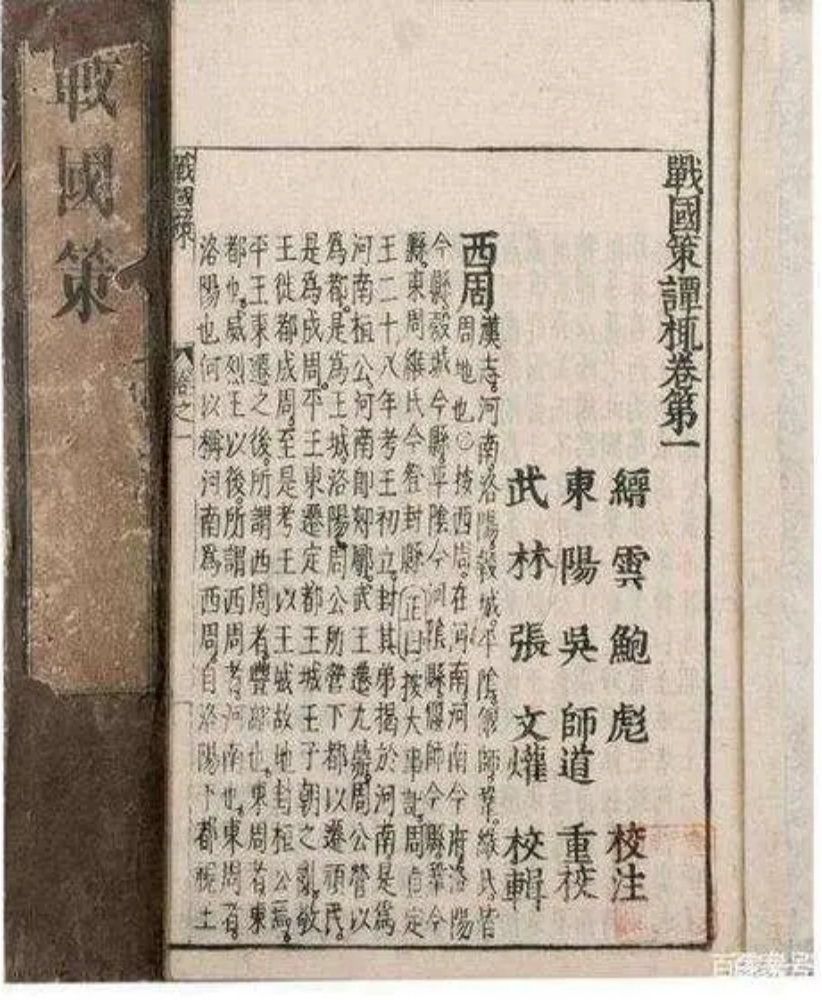 戰國策
戰國策譚棷卷第一
縉雲 鮑彪 校注
東陽 吳師道 重校
武林 張文爟 校輯
西周
漢志河南洛陽穀城平陰偃師鞏緱氏皆
周地也○按西周在河南河南今府洛陽
今縣穀城今縣平陰今河陰縣偃師今縣鞏今
縣東周緱氏今登封縣正曰按大事記周貞定
王二十八年考王初立封其弟揭於河南是為
河南桓公河南即郟鄏武王遷九鼎周公營以
為都是為王城洛陽周公所營下都以遷頑民
是為成周平王東遷定都王城王子朝之亂敬
王徙都成周至是考王以王城故地封桓公焉
平王東遷之後所謂西周者豐鎬也東周者東
都也威烈王以後所謂西周者河南也東周者
洛陽也何以稱河南為西周自洛陽下都視王
戰國策
卷之一
百家号